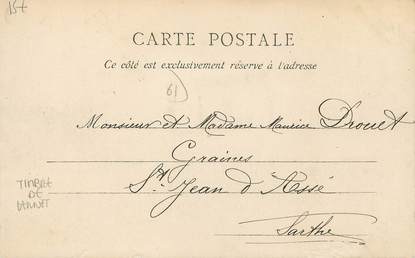 15€
CARTE POSTALE
Ce côté est exclusivement réservé à l'adresse
61
Monsieur et Madame Maurice Drouet
Graines
St. Jean d'Assé
Sarthe
TIMBRE
DE